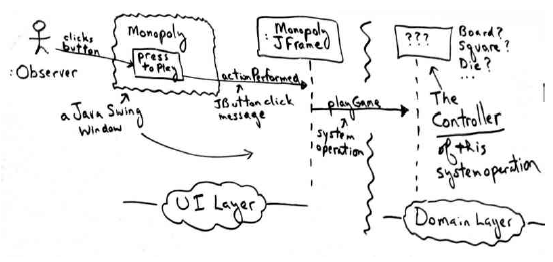 clicks
button
:Observer
Monopoly
press
to Play
a Java Swing
Window
actionPerformed
JButton click
message
: Monopoly
JFrame
playGame
system
operation
???
Board?
Square?
Die?
...
The
Controller
of this
system operation
UI Layer
Domain Layer